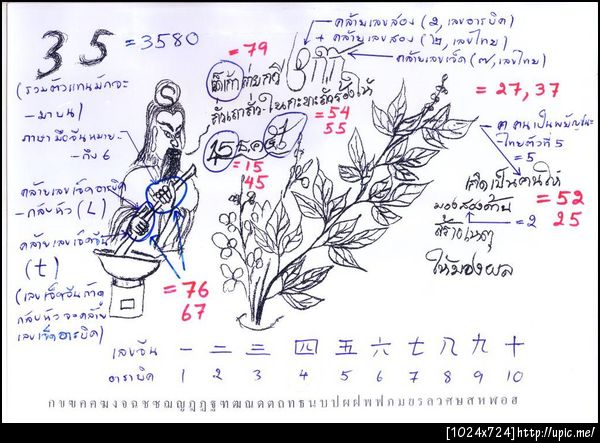 35 = 3580
(รวมตัวแทนมักจะ
-มาบน)
ภาษามือจีนหมาย-
-ถึง 6
คล้ายเลขเจ็ดอารบิค
-กลับหัว (L)
คล้ายเลขเจ็ดจีน
(t)
(เลขเจ็ดจีนถ้าดู
กลับหัวจะคล้าย
เลขเจ็ดอารบิค)
= 79
คล้ายเลขสอง (2, เลขอารบิค)
+ คล้ายเลขสอง (๒, เลขไทย)
คล้ายเลขเจ็ด (๗, เลขไทย)
= 27, 37
= 54
55
15 ธค
= 15
45
ค คนเป็นพยัญชนะ
-ไทยตัวที่ 5
= 5
เกิดเป็นคนให้
= 52
25
มองสองด้าน
= 2
สร้างเหตุ
ให้มองผล
= 76
67
เลขจีน 一 二 三 四 五 六 七 八 九 十
อาราบิค 1 2 3 4 5 6 7 8 9 10
ก ข ฃ ค ฅ ฆ ง จ ฉ ช ซ ฌ ญ ฎ ฏ ฐ ฑ ฒ ณ ด ต ถ ท ธ น บ ป ผ ฝ พ ฟ ภ ม ย ร ล ว ศ ษ ส ห ฬ อ ฮ
[1024x724]http://upic.me/